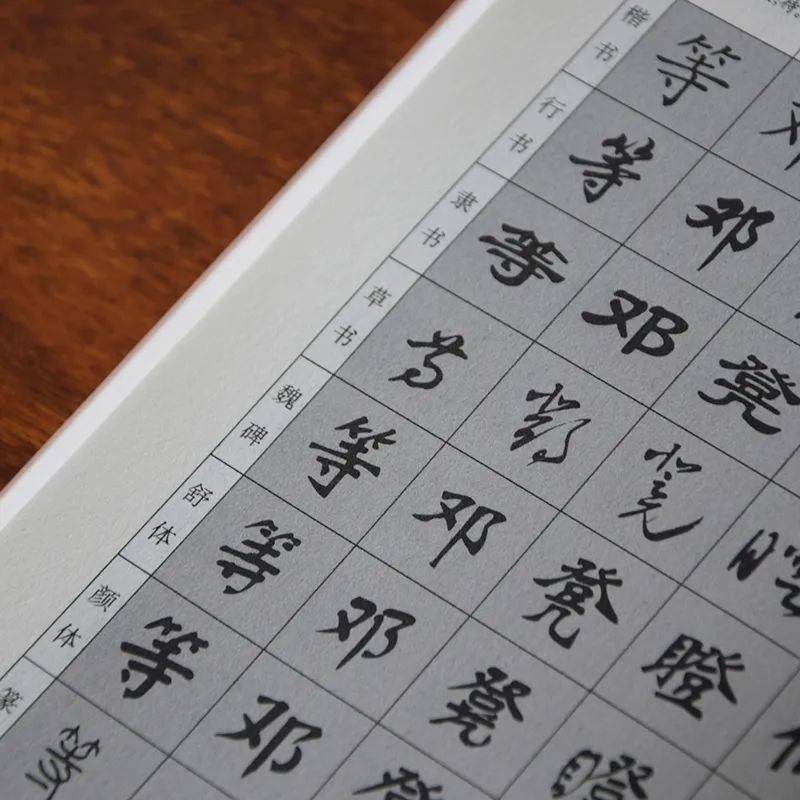 楷书 等
行书 等 邓
隶书 等 邓 凳
草书 等 鄧 凳
魏碑 等 邓 凳 瞪
舒体 等 邓 凳 瞪
颜体 等 邓 凳
篆 等